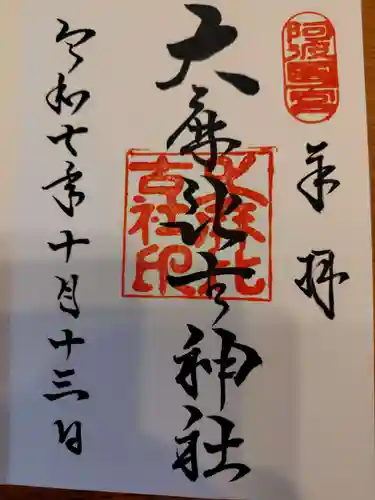 奉拝
阿波國一宮
大麻比古神社
大麻比古社印
令和七年十月十三日